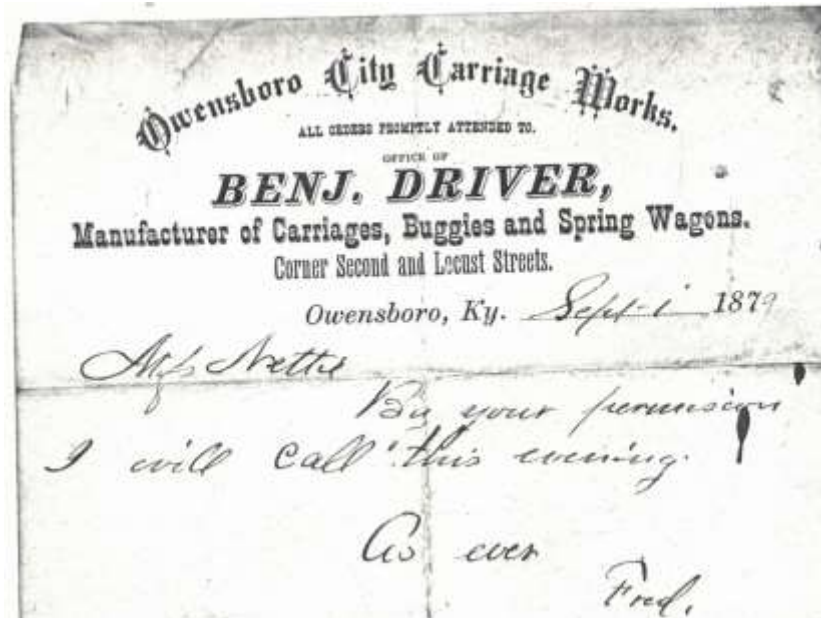 Owensboro City Carriage Works.
ALL ORDERS PROMPTLY ATTENDED TO.
OFFICE OF
BENJ. DRIVER,
Manufacturer of Carriages, Buggies and Spring Wagons.
Corner Second and Locust Streets.
Owensboro, Ky. Sept 1 1879
Miss Nettie
By your permission
I will call this evening.
As ever
Fred.